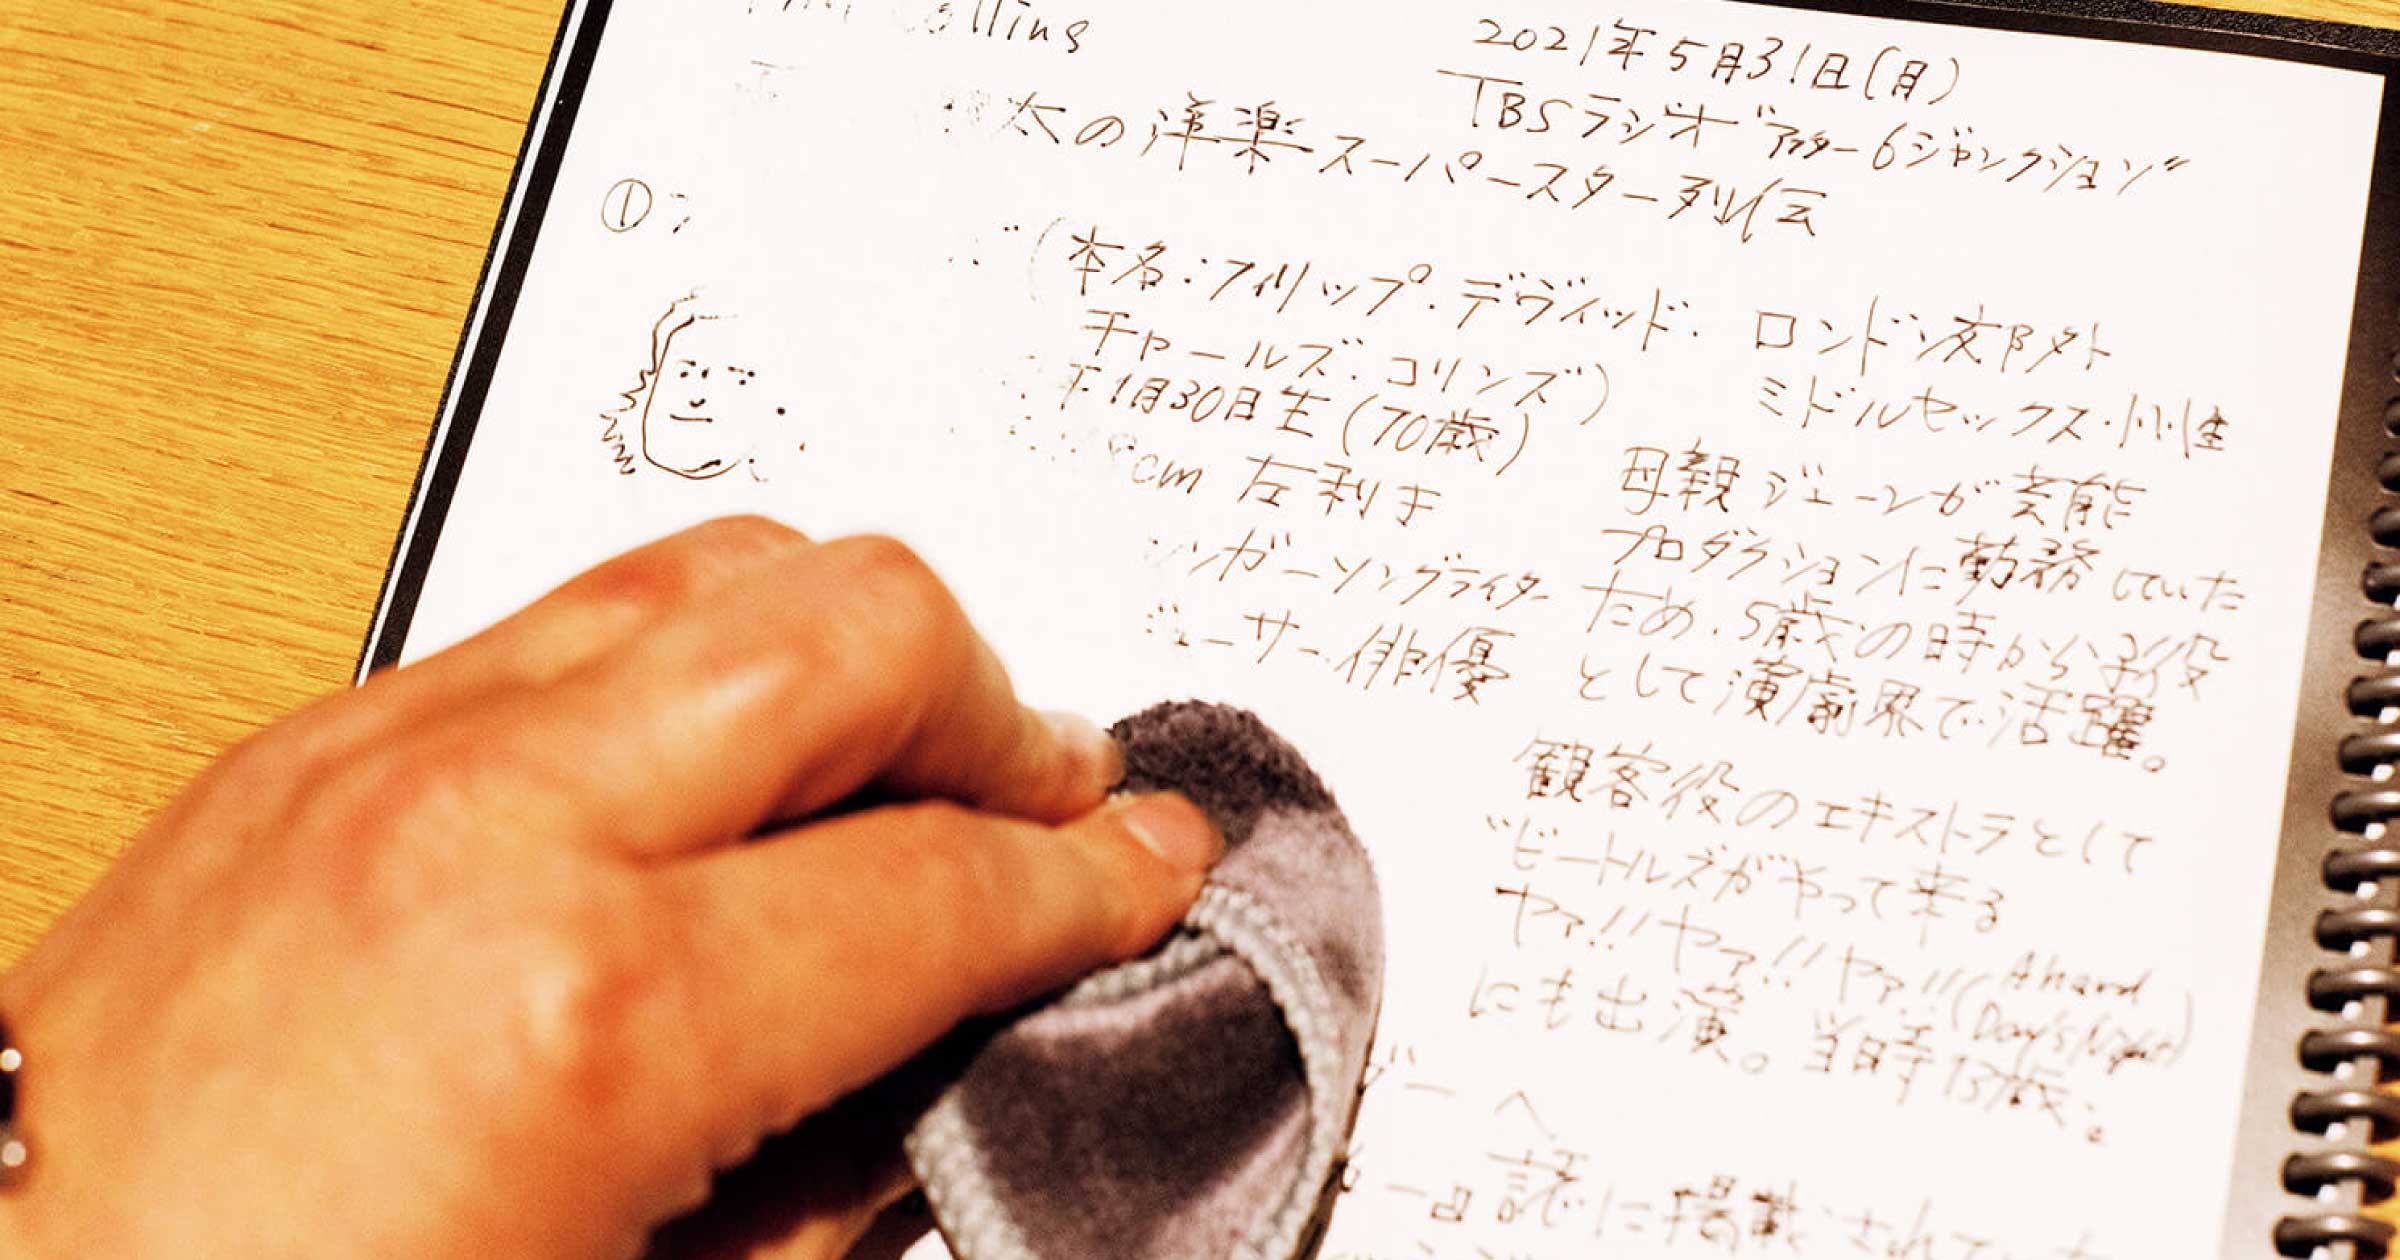 2021年5月31日(月)
TBSラジオ"アフター6ジャンクション"
太の洋楽スーパースター列伝
①
(本名:フィリップ・デヴィッド・
チャールズ・コリンズ)
1月30日生(70歳)
cm 左利き
ンガーソングライター
ューサー・俳優
ロンドン郊外
ミドルセックス・
母親ジェーンが芸能
プロダクションに勤務していた
ため、5歳の時から子役
として演劇界で活躍。
観客役のエキストラとして
"ビートルズがやって来る
ヤァ!!ヤァ!!ヤァ!!(A hard
Day's Night)
にも出演。当時13歳。
ーへ
誌に掲載されてい